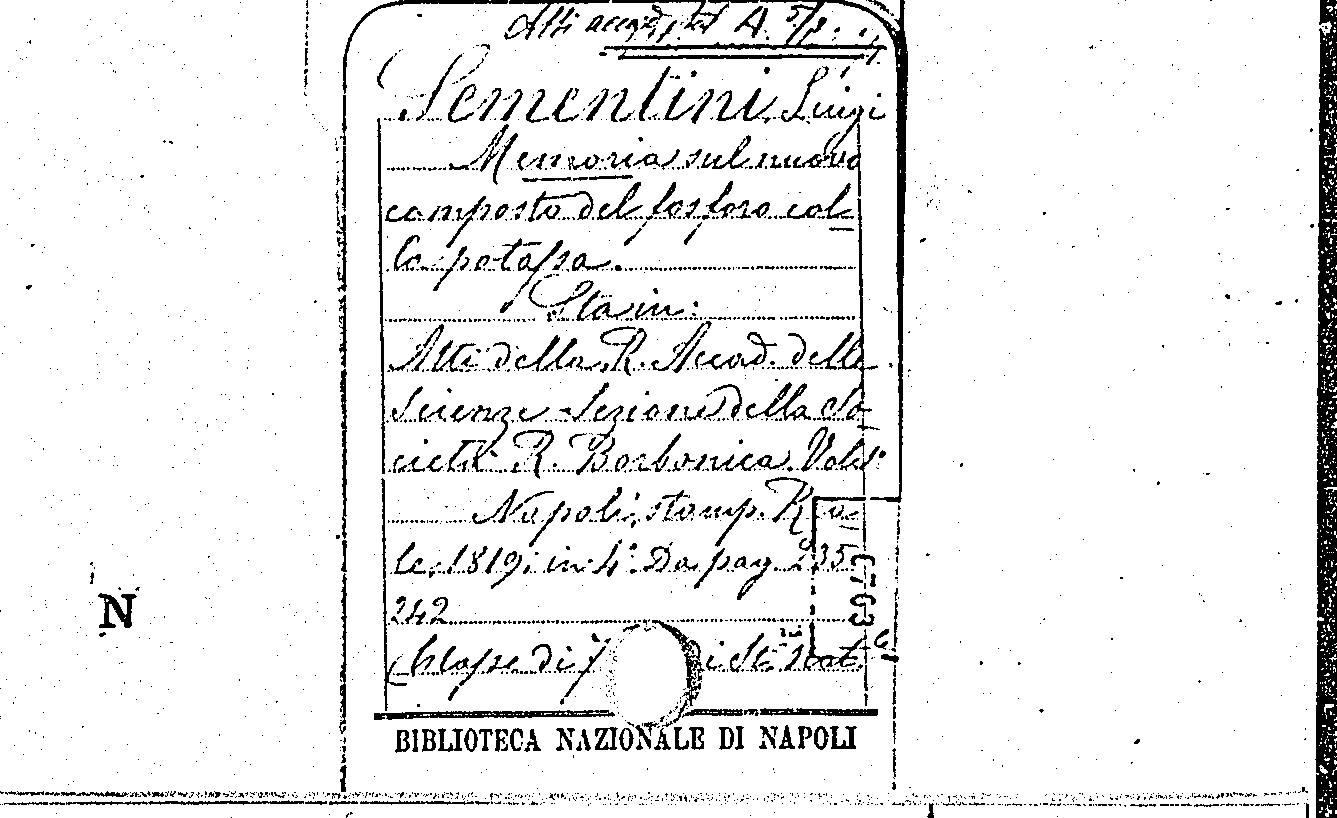 Atti accad. A. 5/2
Sementini Luigi
Memoria sul nuovo
composto del fosforo col-
la potassa.
Sta in:
Atti della R. Accad. delle
Scienze Sezione della So-
cietà R. Borbonica. Vol.
Napoli, stamp. Rea-
le, 1819; in 4°. Da pag. 235-
242
Classe di i St. nat.
N
BIBLIOTECA NAZIONALE DI NAPOLI